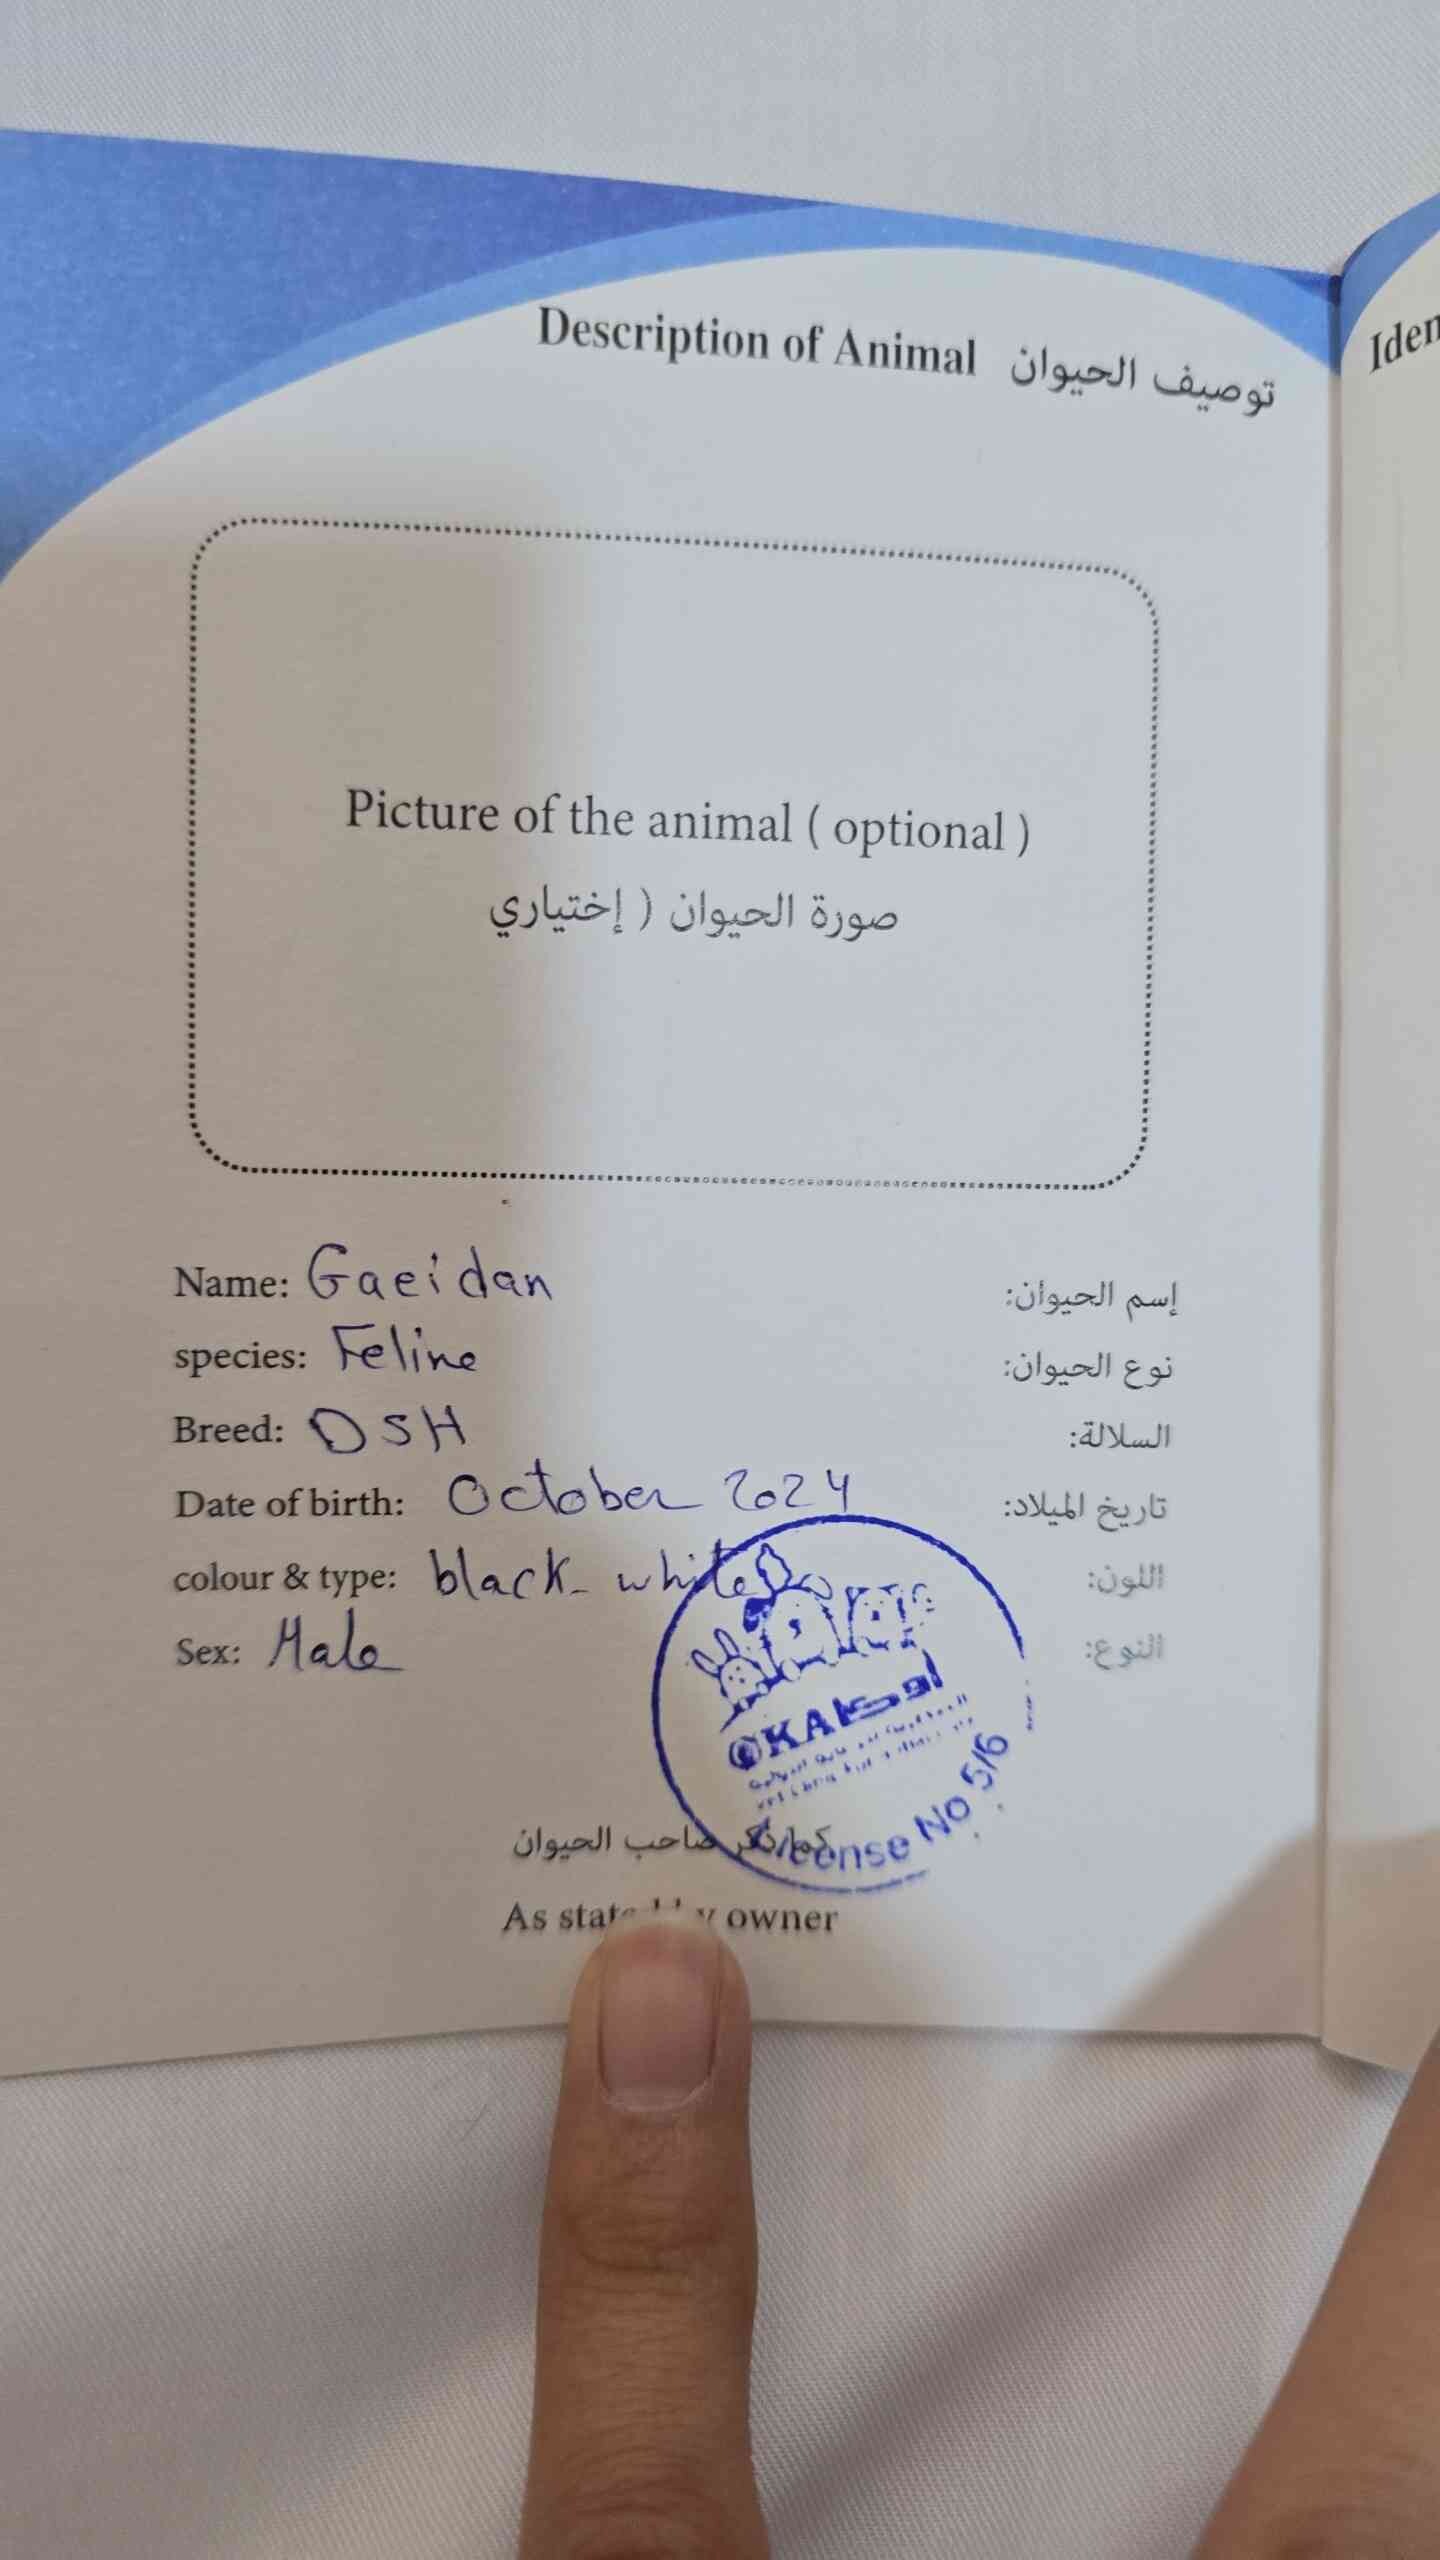 Description of Animal توصيف الحيوان
Iden
Picture of the animal ( optional )
صورة الحيوان ( إختياري
Name: Gaeidan إسم الحيوان:
species: Feline نوع الحيوان:
Breed: DSH السلالة:
Date of birth: October 2024 تاريخ الميلاد:
colour & type: black- white اللون:
Sex: Male النوع:
OKA اوكا
License No 516
كما ذكر صاحب الحيوان
As stated by owner